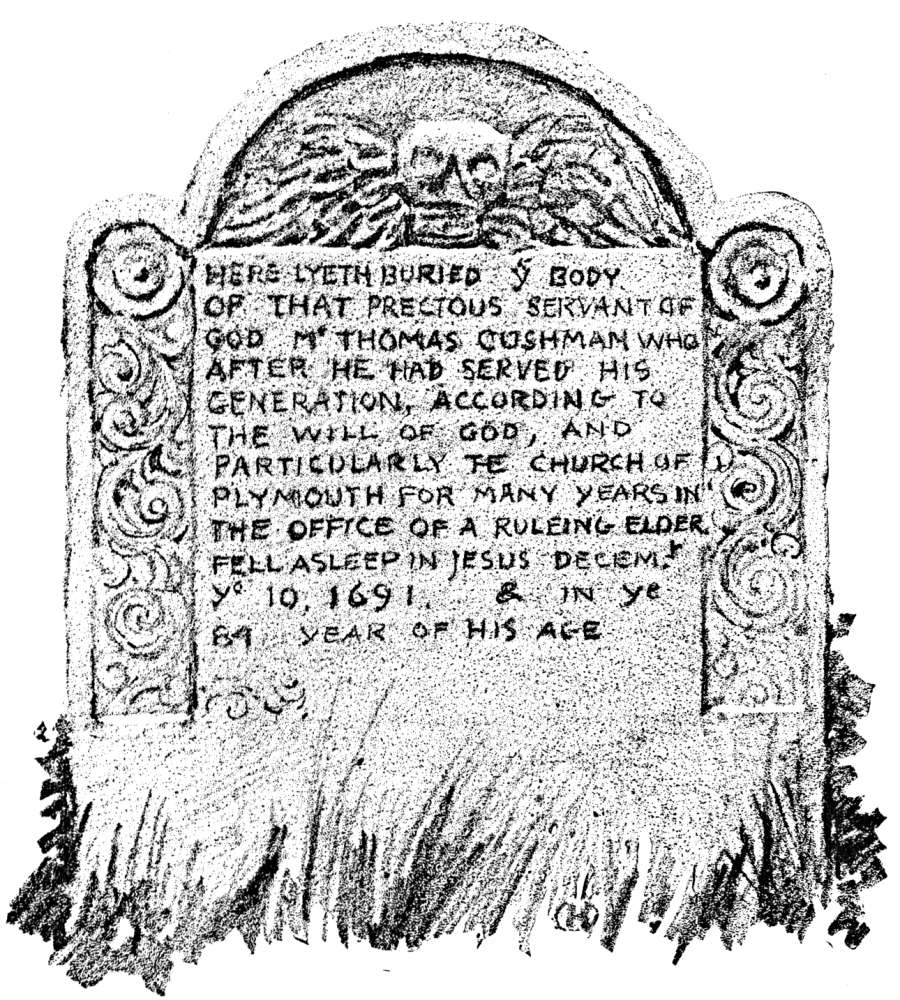 HERE LYETH BURIED yͤ BODY
OF THAT PRECIOUS SERVANT OF
GOD Mʳ THOMAS CUSHMAN WHO
AFTER HE HAD SERVED HIS
GENERATION, ACCORDING TO
THE WILL OF GOD, AND
PARTICULARLY TE CHURCH OF
PLYMOUTH FOR MANY YEARS IN
THE OFFICE OF A RULEING ELDER
FELL ASLEEP IN JESUS DECEM.ʳ
Yᵉ 10, 1691. & IN Yᵉ
84 YEAR OF HIS AGE